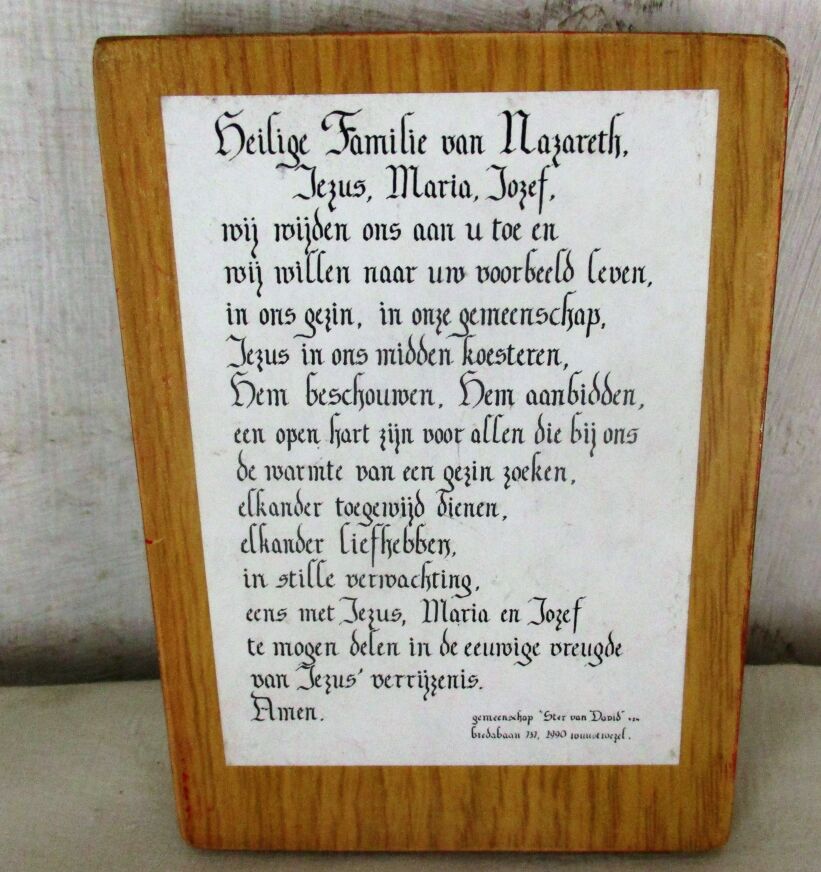 Heilige Familie van Nazareth,
Jezus, Maria, Jozef,
wij wijden ons aan u toe en
wij willen naar uw voorbeeld leven,
in ons gezin, in onze gemeenschap,
Jezus in ons midden koesteren,
Hem beschouwen, Hem aanbidden,
een open hart zijn voor allen die bij ons
de warmte van een gezin zoeken,
elkander toegewijd dienen,
elkander liefhebben,
in stille verwachting,
eens met Jezus, Maria en Jozef
te mogen delen in de eeuwige vreugde
van Jezus' verrijzenis.
Amen.
gemeenschap "Ster van David"
bredabaan 2990 wuustwezel.